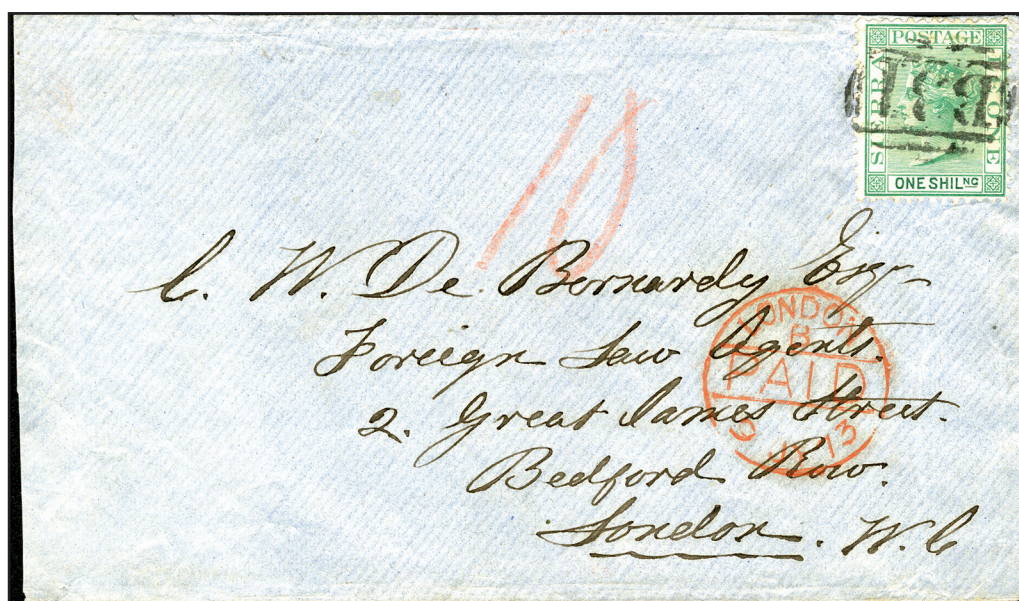 POSTAGE
SIERRA LEONE
B31
ONE SHILNG
10
C. W. De Bernardy Esqr
Foreign Law Agents.
2. Great James Street.
Bedford Row.
London. W. C
LONDON
PAID
73